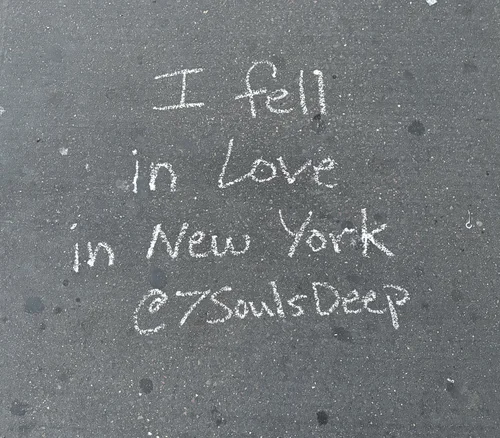 I fell
in Love
in New York
@7SoulsDeep